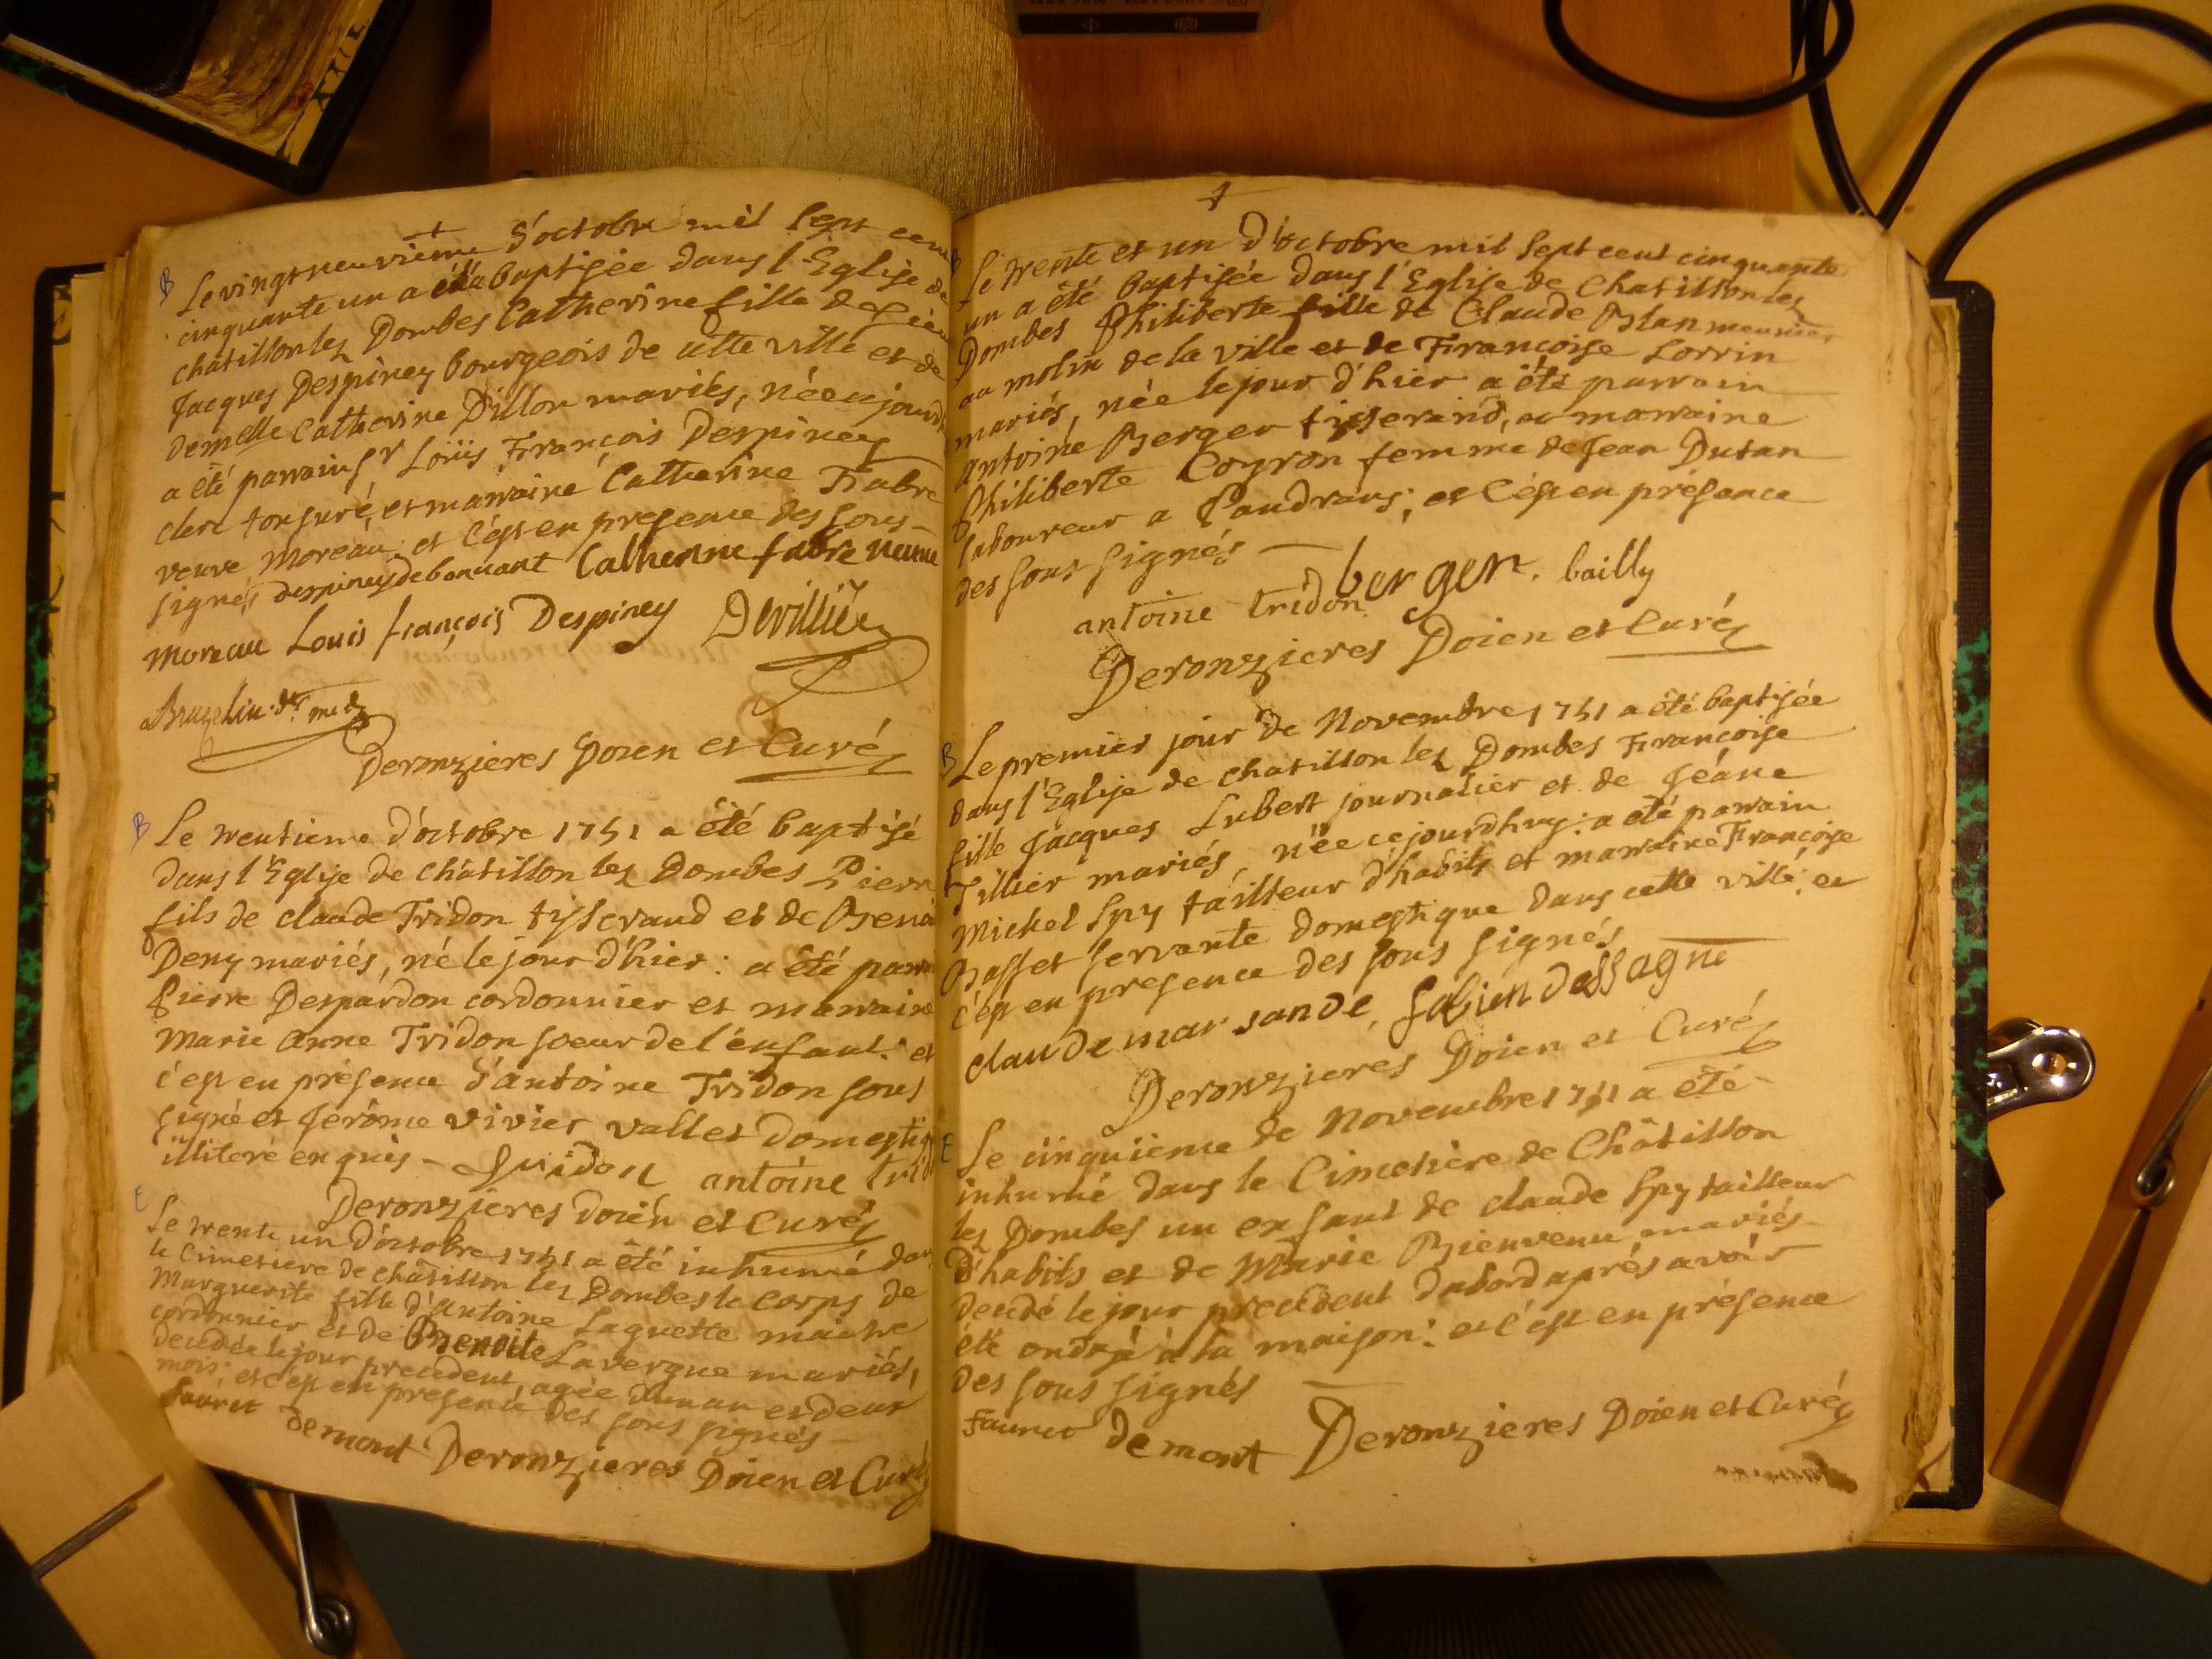 B
Le vingtneuvieme d'octobre mil sept cent
cinquante un a été baptisée dans l'Eglise de
châtillon lez Dombes Catherine fille de
Jacques Despiney bourgeois de cette ville et de
demelle Catherine Dillon mariés, née cejourd
a été parrain sr Loüis François Despiney
clerc tonsuré, et marraine Catherine Fabre
veuve Moreau: et c'est en presence des sous-
signés despiney de bonnant Catherine fabre veuve
moreau Louis françois Despiney Devillier
Deronzieres Doien et Curé
B
Le trentieme d'octobre 1751 a été baptisé
dans l'Eglise de châtillon lez Dombes Pierr
fils de claude Tridon tysserand et de Benoi
Deny mariés, né le jour d'hier: a été parra
pierre Despardon cordonnier et marraine
Marie Anne Tridon soeur de l'enfant: et
c'est en présence d'antoine Tridon sous
signé et Jerôme vivier vallet domestiq
illiteré enquis - antoine trid
Deronzieres doien et Curé
E
Le trente un d'octobre 1751 a été inhumé dan
le Cimetiere de châtillon lez Dombes le corps de
Marguerite fille d'antoine Laguette maitre
cordonnier et de Benoite Lavergne mariés,
decedée le jour precedent, agée d'un an et deux
mois: et c'est en presence des sous signés -
fauret demont Deronzieres Doien et Curé
Le trente et un d'octobre mil sept cent cinquante
un a été baptisée dans l'Eglise de Chatillon lez
Dombes Philiberte fille de Claude Blan meunier
au molin de la ville et de Françoise Lorrin
mariés, née le jour d'hier a été parrain
Antoine Berger tisserand, et marraine
Philiberte Coyron femme de Jean Dutan
laboureur a Candrans; et c'est en présence
des sous signés
antoine tridon berger. bailly
Deronzieres Doien et Curé
B
Le premier jour de Novembre 1751 a été baptisée
dans l'Eglise de chatillon lez Dombes Françoise
fille Jacques Lubert journalier et de Jéane
Tillier mariés, née cejourdhuy: a été parrain
Michel Spy tailleur d'habits et marraine Françoise
Basset servante domestique dans cette ville: et
c'est en presence des sous signés
claude marsande, fabien dessagne
Deronzieres Doien et Curé
E
Le cinquieme de Novembre 1751 a été
inhumé dans le Cimetiere de Châtillon
lez Dombes un enfant de claude Spy tailleur
d'habits et de Marie Bienvenu mariés
decedé le jour precedent dabord aprés avoir
été ondoyé a la maison: et c'est en présence
des sous signés
fauret demont Deronzieres Doien et Curé